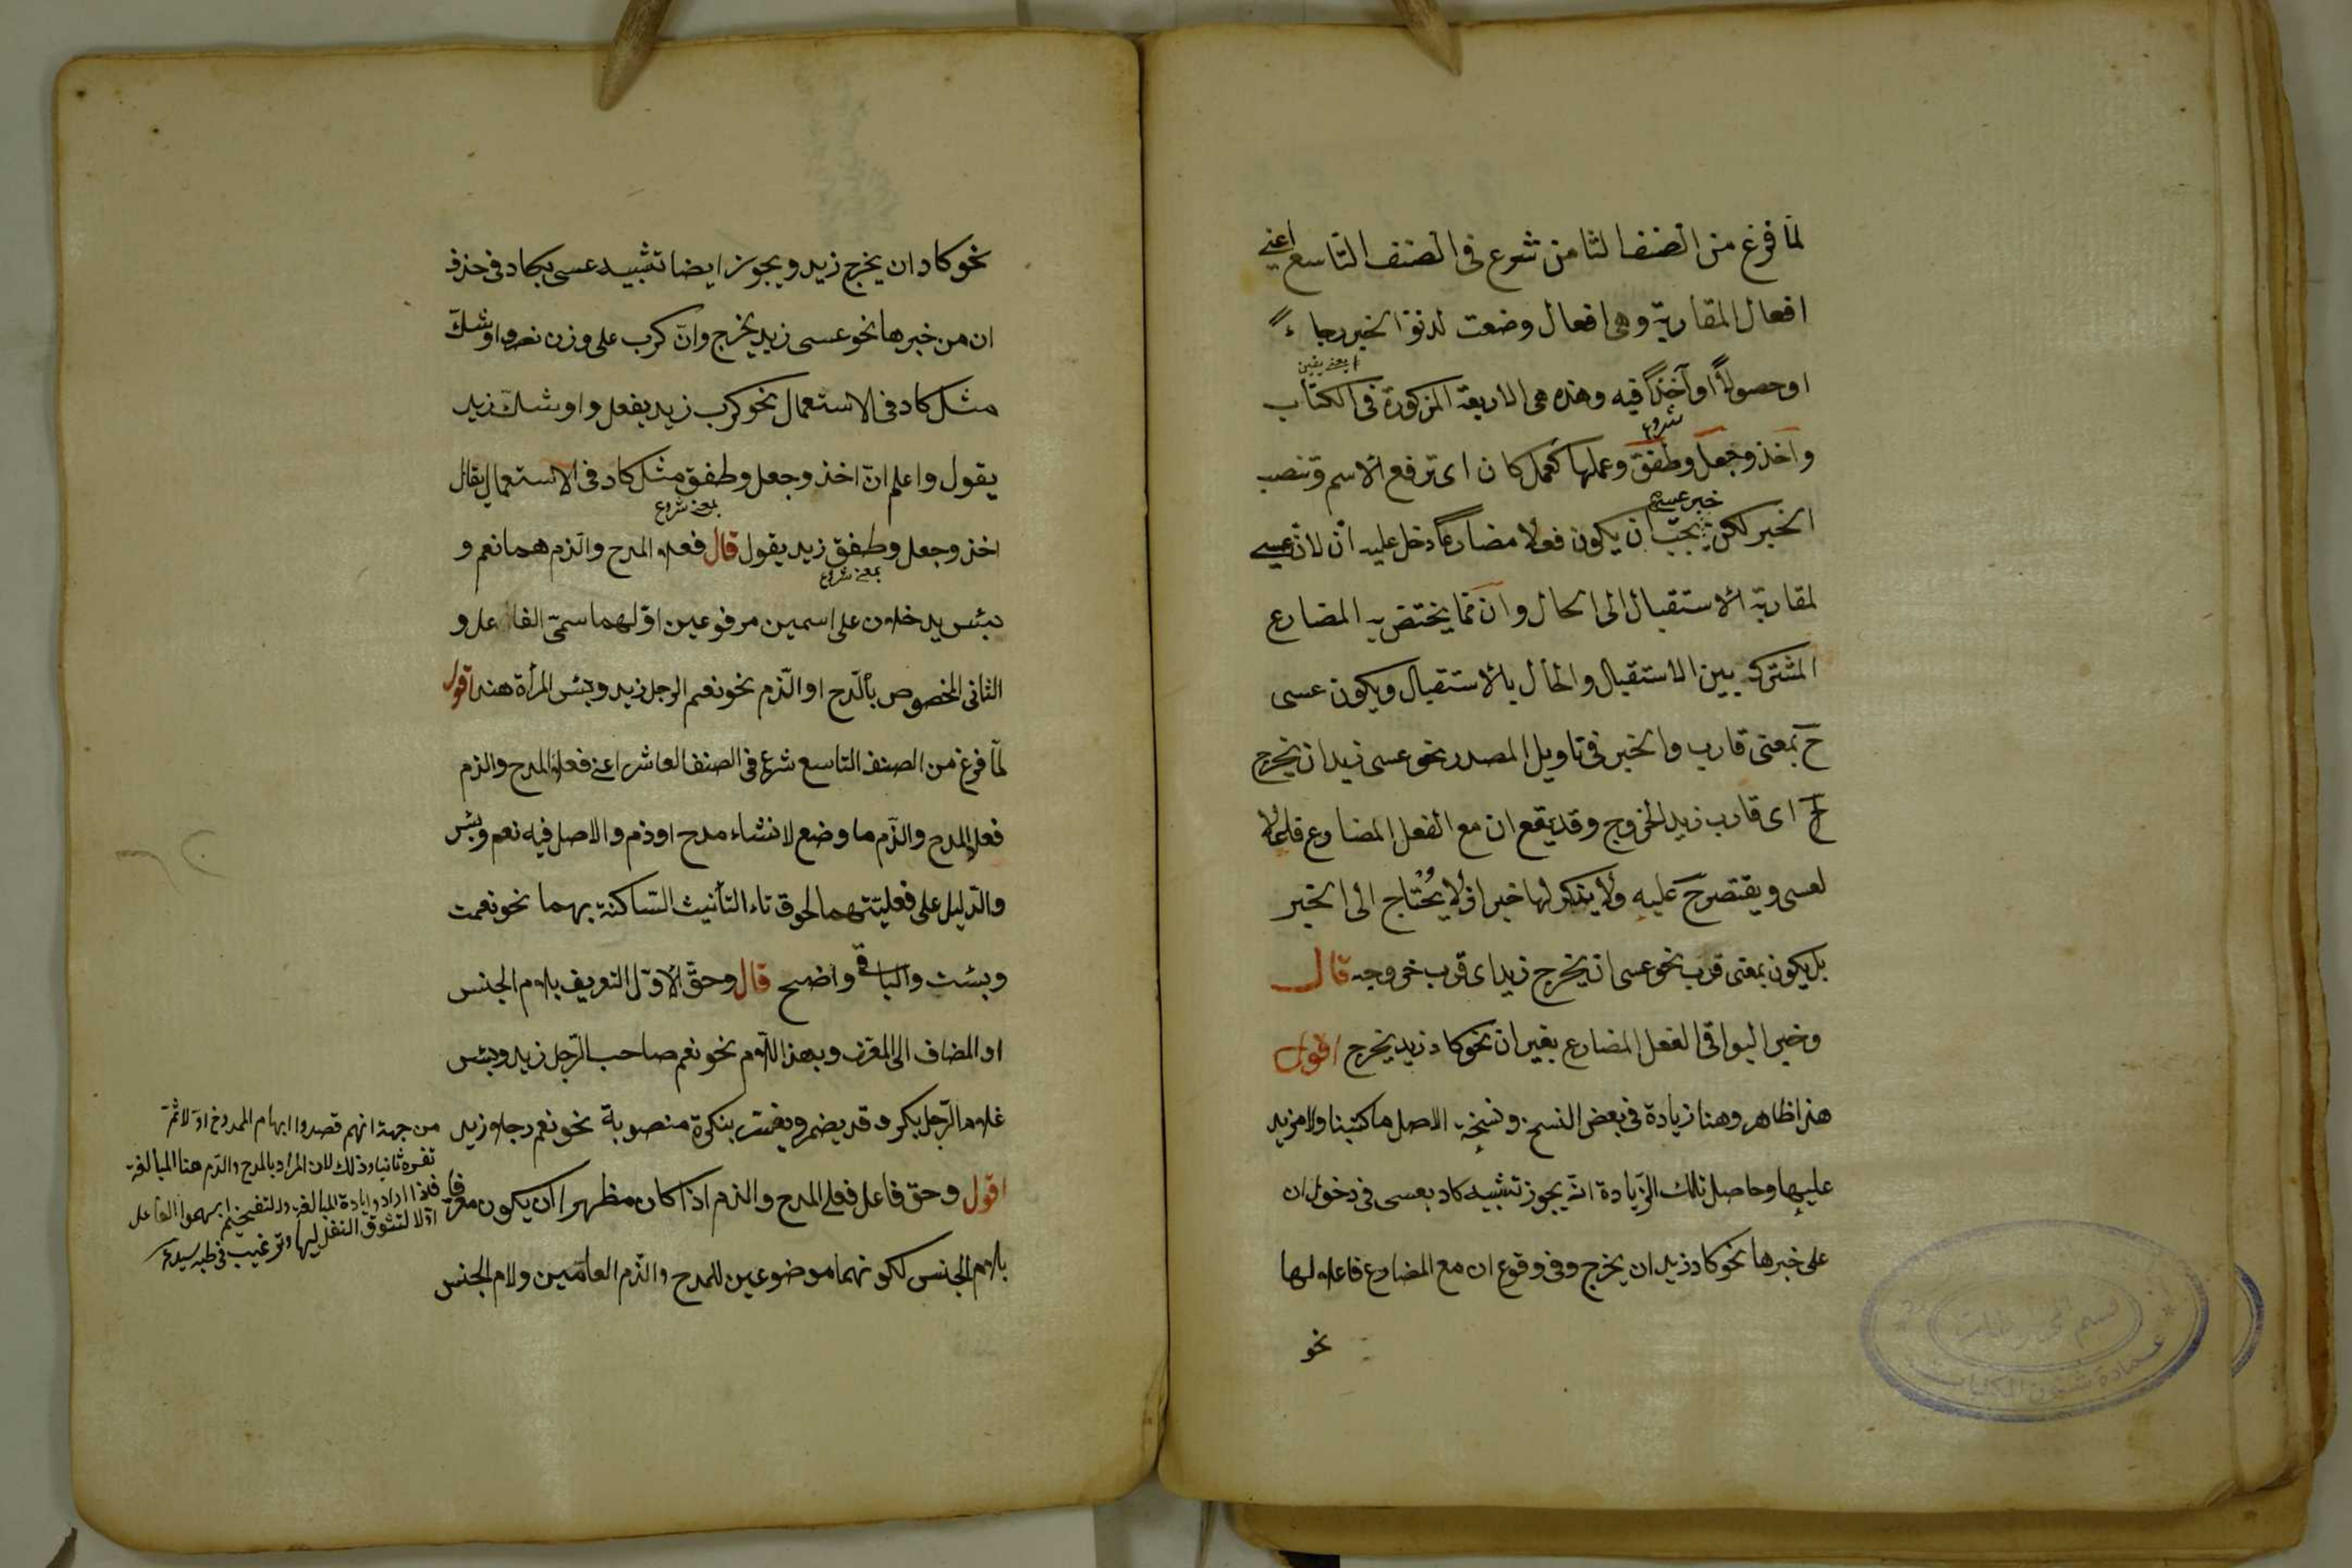 لمّا فرغ من الصنف الثامن شرع فى الصنف التاسع اعنى
افعال المقاربة وهى افعال وضعت لدنوّ الخبر رجاءً
او حصولاً او آخذاً فيه وهذه هى الاربعة المذكورة فى الكتاب
شروع
واخذ وجعل وطفق وعملها كعمل كان اى ترفع الاسم وتنصب
خبر عسى
الخبر لكن يجب ان يكون فعلا مضارعا دخل عليه ان لان عسى
لمقاربة الاستقبال الى الحال وان مما يختص به المضارع
المشترك بين الاستقبال والحال بالاستقبال ويكون عسى
ح بمعنى قارب والخبر فى تاويل المصدر نحو عسى زيد ان يخرج
اى قارب زيد الخروج وقد يقع ان مع الفعل المضارع فاعلا
لعسى ويقتصر ح عليه ولا يذكر لها خبر اذ لا يحتاج الى الخبر
بل يكون بمعنى قرب نحو عسى ان يخرج زيد اى قرب خروجه قال
وخبر البواقى الفعل المضارع بغير ان نحو كاد زيد يخرج اقول
هذا ظاهر وهنا زيادة فى بعض النسخ ونسخة الاصل ما كتبنا ولا مزيد
عليها وحاصل تلك الزيادة انه يجوز تشبيه كاد بعسى فى دخول ان
على خبرها نحو كاد زيد ان يخرج وفى وقوع ان مع المضارع فاعلا لها
نحو
نحو كاد ان يخرج زيد ويجوز ايضا تشبيه عسى بكاد فى حذف
ان من خبرها نحو عسى زيد يخرج وانّ كرب على وزن نصر واوشك
مثل كاد فى الاستعمال نحو كرب زيد يفعل واوشك زيد
يقول واعلم انّ اخذ وجعل وطفق مثل كاد فى الاستعمال يقال
بمعنى شروع
اخذ وجعل وطفق زيد يقول قال فعلا المدح والذم هما نعم و
بمعنى شروع
بئس يدخلان على اسمين مرفوعين اوّلهما سمّى الفاعل و
الثانى المخصوص بالمدح او الذّم نحو نعم الرجل زيد وبئس المرأة هند اقول
لمّا فرغ من الصنف التاسع شرع فى الصنف العاشر اعنى فعلا المدح والذم
فعل المدح والذّم ما وضع لانشاء مدح او ذم والاصل فيه نعم وبئس
والدّليل على فعليّتهما لحوق تاء التأنيث السّاكنة بهما نحو نعمت
وبئست والباقى واضح قال وحقّ الاوّل التعريف بلام الجنس
او المضاف الى المعرّف وبهذا اللام نحو نعم صاحب الرّجل زيد وبئس
غلام الرّجل بكر وقد يضمر ويفسّر بنكرة منصوبة نحو نعم رجلا زيد
اقول وحق فاعل فعلى المدح والذم اذا كان مظهرا ان يكون معرّفا
بلام الجنس لكونهما موضوعين للمدح والذّم العامّين ولام الجنس
من جهة انهم قصدوا ابهام الممدوح اولا ثمّ
تفسره ثانيا وذلك لان المراد بالمدح والذم هنا المبالغة
فلذا ارادوا زيادة المبالغة والتفخيم ابهموا الفاعل
اوّلا لتشوّق النفس اليها وترغيب فى طلبه
قسم المخطوطات
عمادة شؤون المكتبات